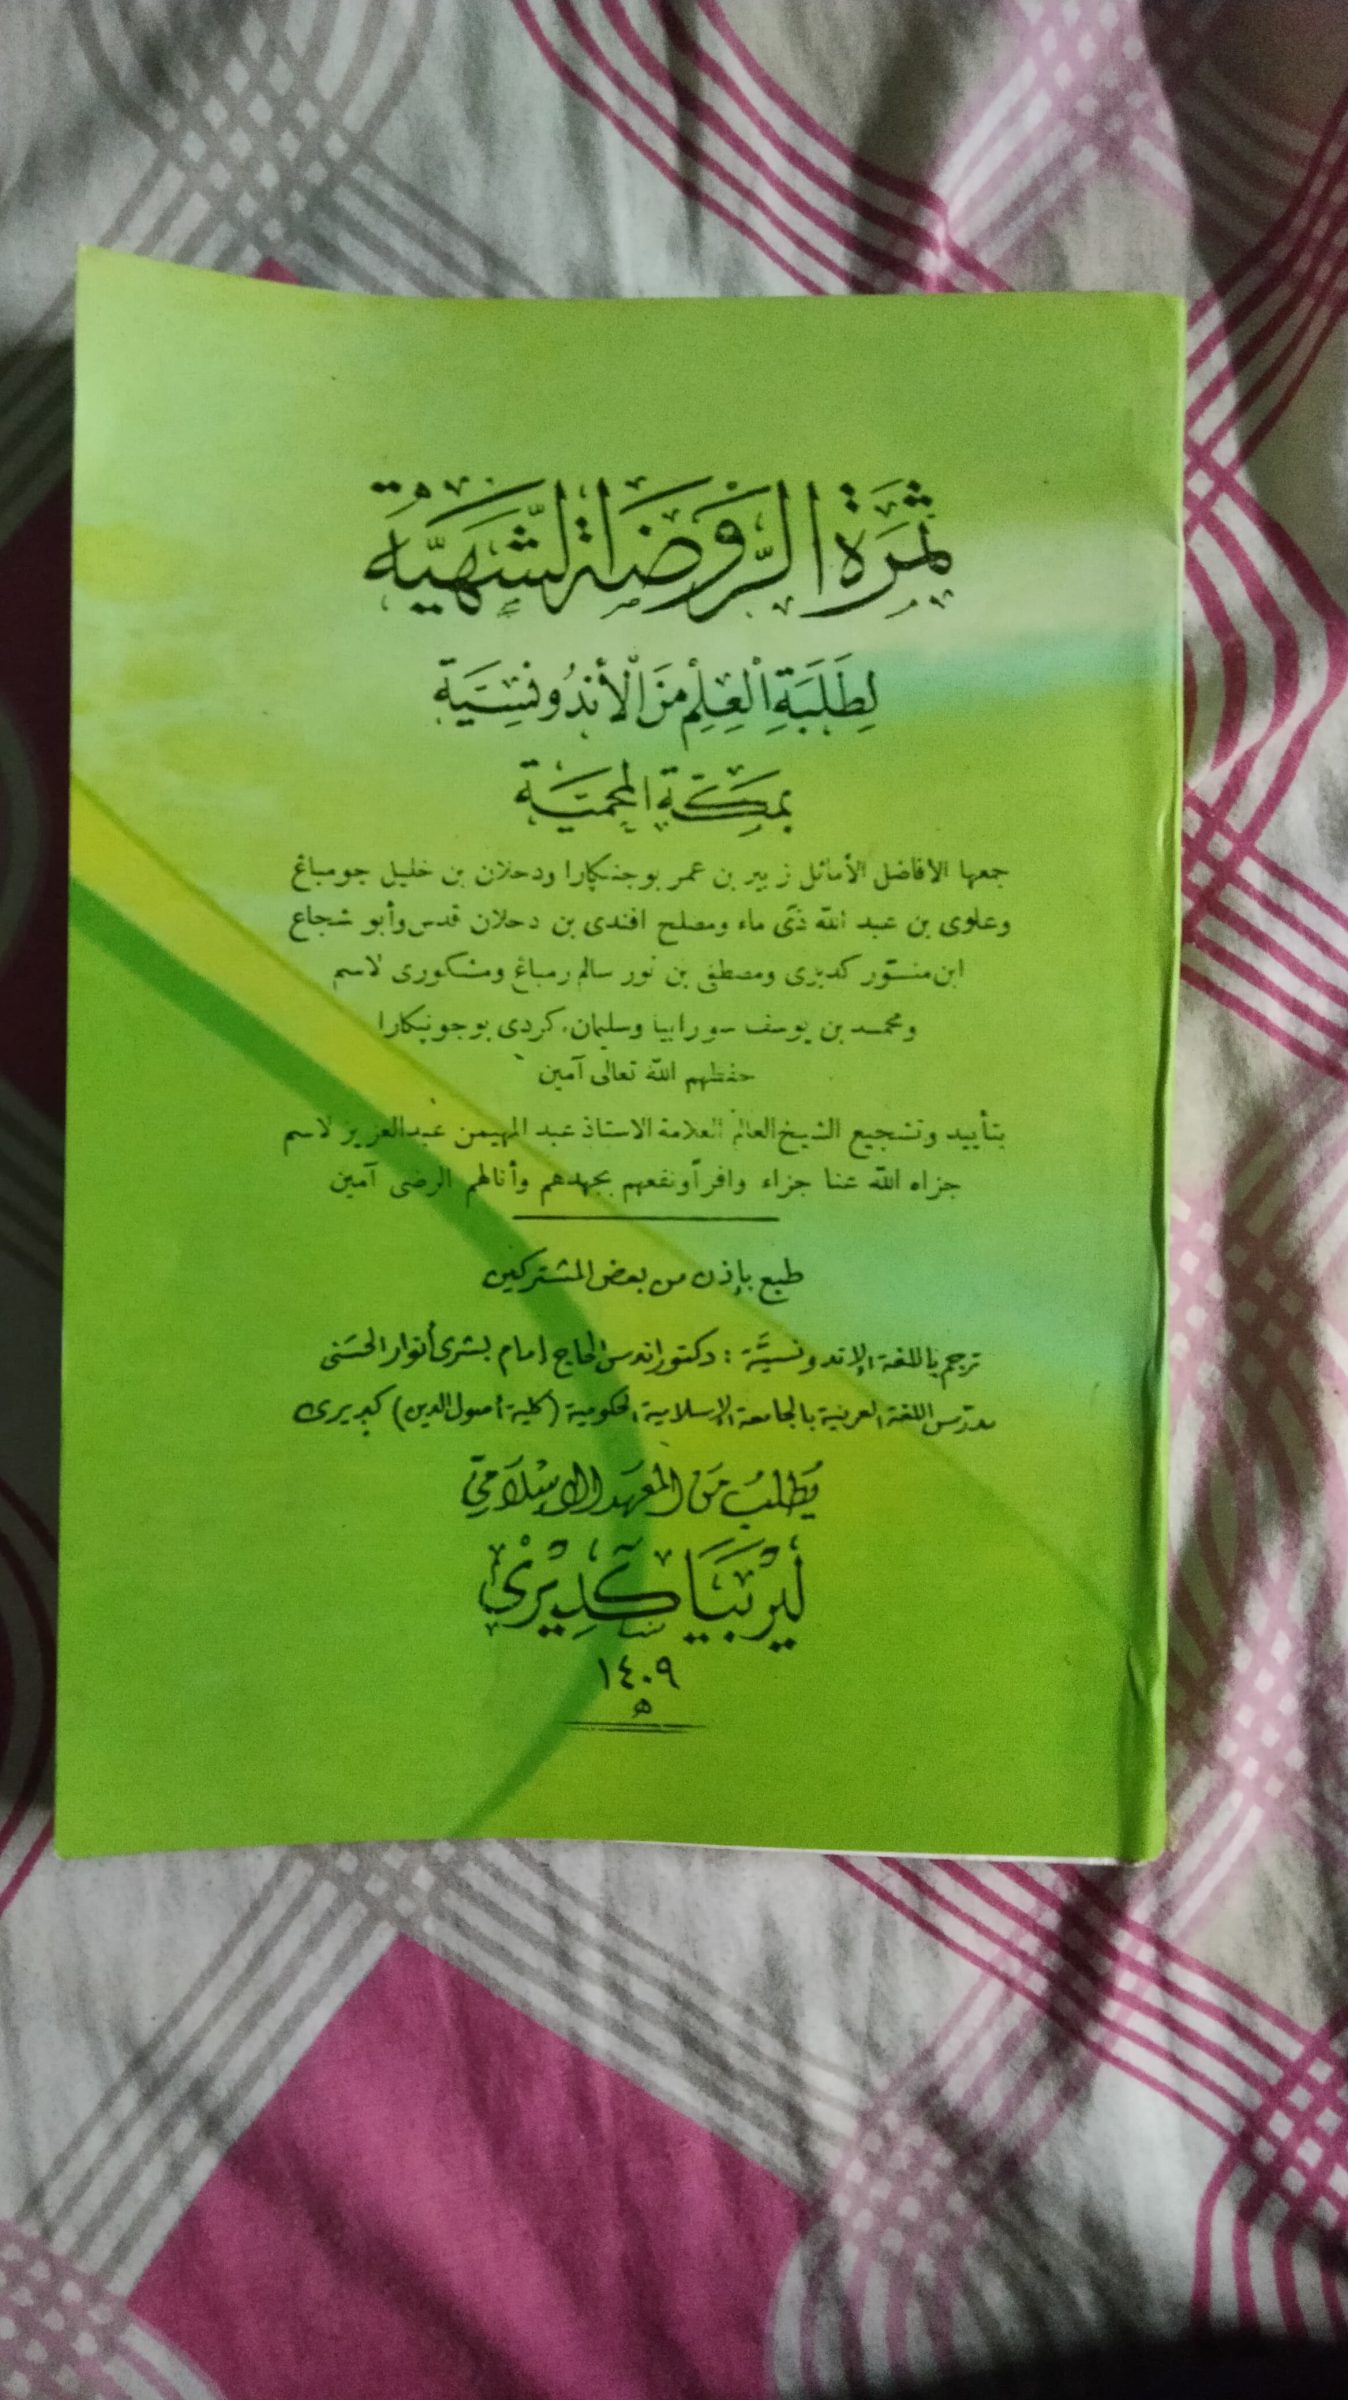 ثَمَرَةُ الرَّوْضَةِ الشَّهِيَّةِ
لِطَلَبَةِ الْعِلْمِ مِنَ الْأَنْدُونِسِيَّةِ
بِمَكَّةَ المحْمِيَّة
جمعها الافاضل الأماثل زبير بن عمر بوجنكارا ودحلان بن خليل جومباغ
وعلوى بن عبد الله ذى ماء ومصلح افندى بن دحلان قدس وأبو شجاع
ابن منتور كديرى ومصطفى بن نور سالم رمباغ ومشكورى لاسم
ومحمد بن يوسف سورابيا وسليمان كردى بوجونيكارا
حفظهم الله تعالى آمين
بتأييد وتشجيع الشيخ العالم العلامة الاستاذ عبد المهيمن عبد العزيز لاسم
جزاه الله عنا جزاء وافراً ونفعهم بجهدهم وأنالهم الرضى آمين
طبع بإذن من بعض المشتركين
ترجم باللغة الإندونسيَّة : دكتوراندس الحاج إمام بشرى أنوار الحسَنى
مدرس اللغة العربية بالجامعة الإسلامية الحكومية (كلية أصول الدين) كديرى
يُطْلَبُ مِنَ المَعْهَدِ الإِسْلَامِيّ
لِيرْبَيَا كَدِيْرِيْ
١٤٠٩
ه